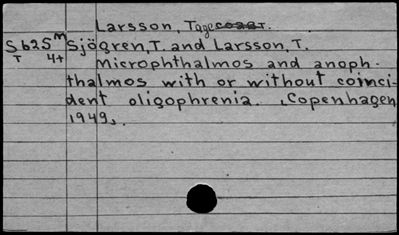 Larsson, Tage
Sb25m Sjögren, T. and Larsson, T.
T 4+ Microphthalmos and anoph-
thalmos with or without coinci-
dent oligophrenia. Copenhagen
1949.